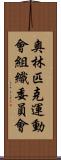 奥林匹克運動
會組織委員會